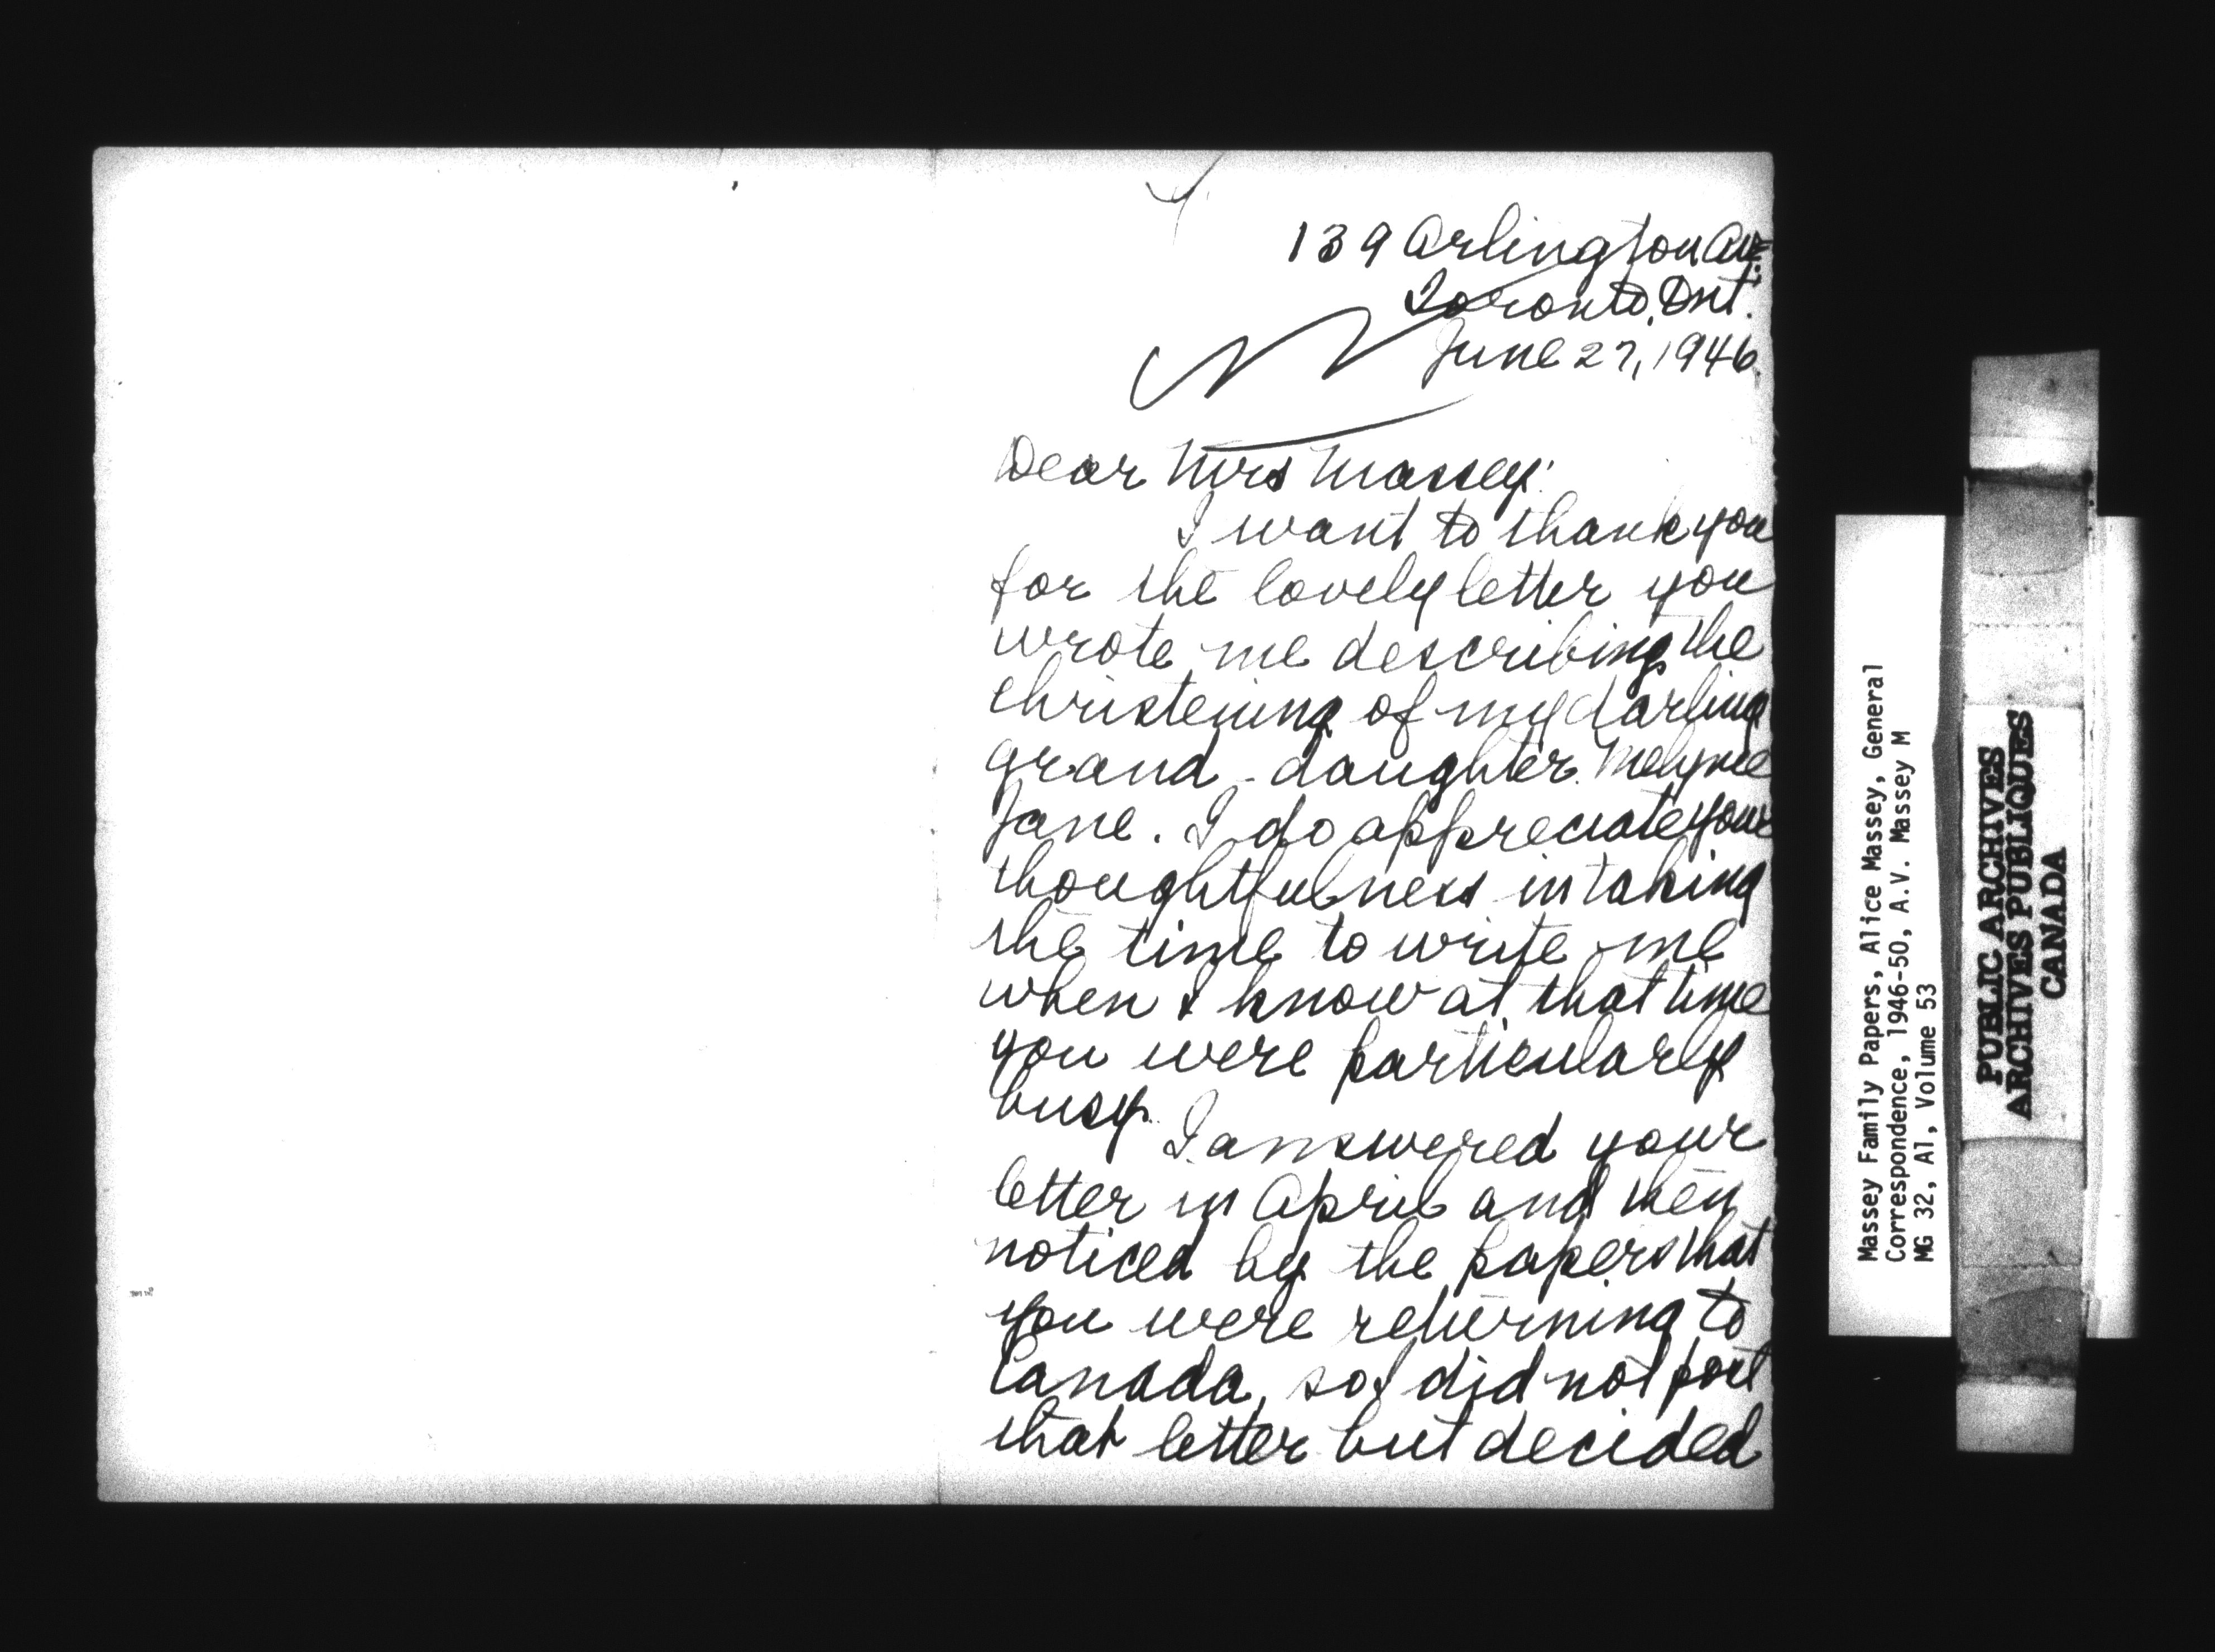 139 Arlington Ave.
Toronto, Ont.
June 27, 1946.
Dear Mrs Massey:
I want to thank you
for the lovely letter you
wrote me describing the
christening of my darling
grand-daughter
Jane. I do appreciate your
thoughtfulness in taking
the time to write me
when I know at that time
you were particularly
busy.
I answered your
letter in April and then
noticed by the papers that
you were returning to
Canada, so I did not post
that letter but decided
Massey Family Papers, Alice Massey, General
Correspondence, 1946-50, A.V. Massey M
MG 32, A1, Volume 53
PUBLIC ARCHIVES
ARCHIVES PUBLIQUES
CANADA